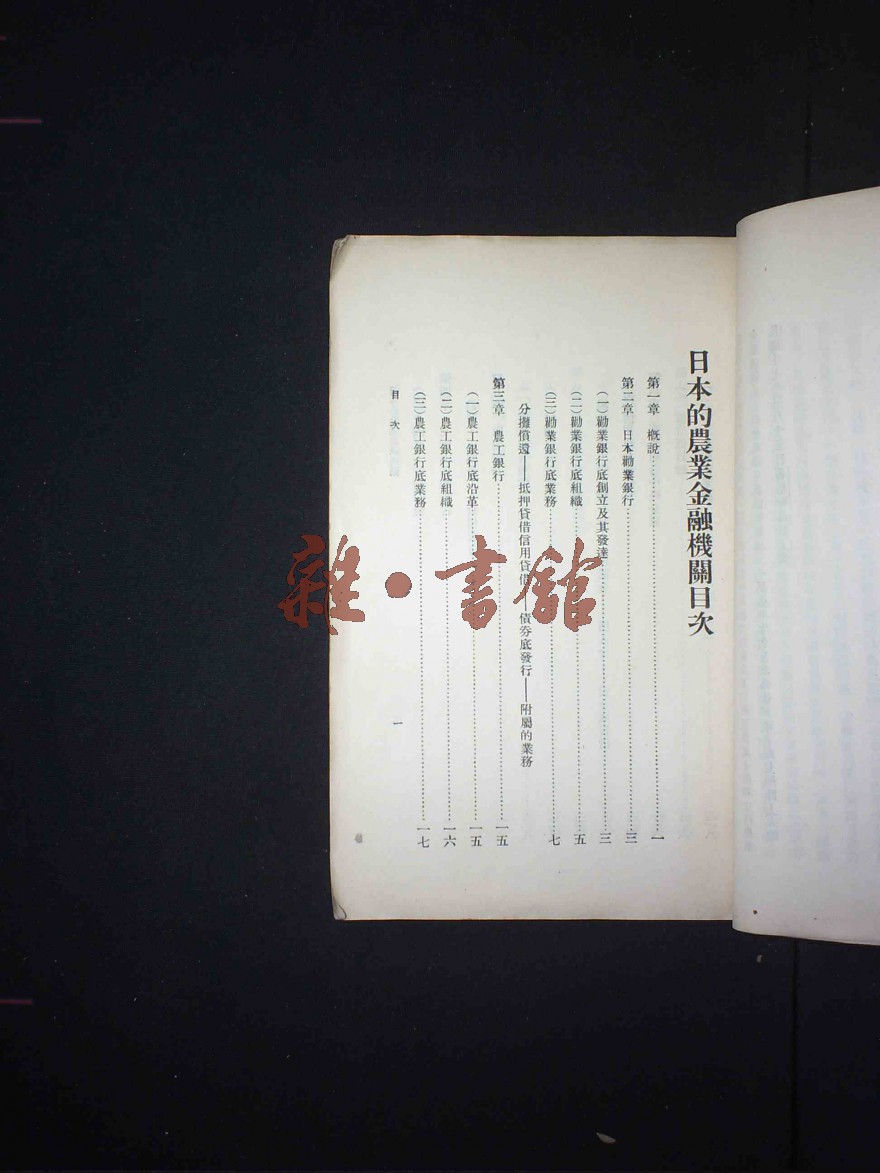 日本的農業金融機關目次
第一章 概說……一
第二章 日本勸業銀行……三
(一)勸業銀行底創立及其發達……三
(二)勸業銀行底組織……五
(三)勸業銀行底業務……七
分攤償還——抵押貸借信用貸借——債券底發行——附屬的業務
第三章 農工銀行……一五
(一)農工銀行底沿革……一五
(二)農工銀行底組織……一六
(三)農工銀行底業務……一七
目次
一
雜·書館